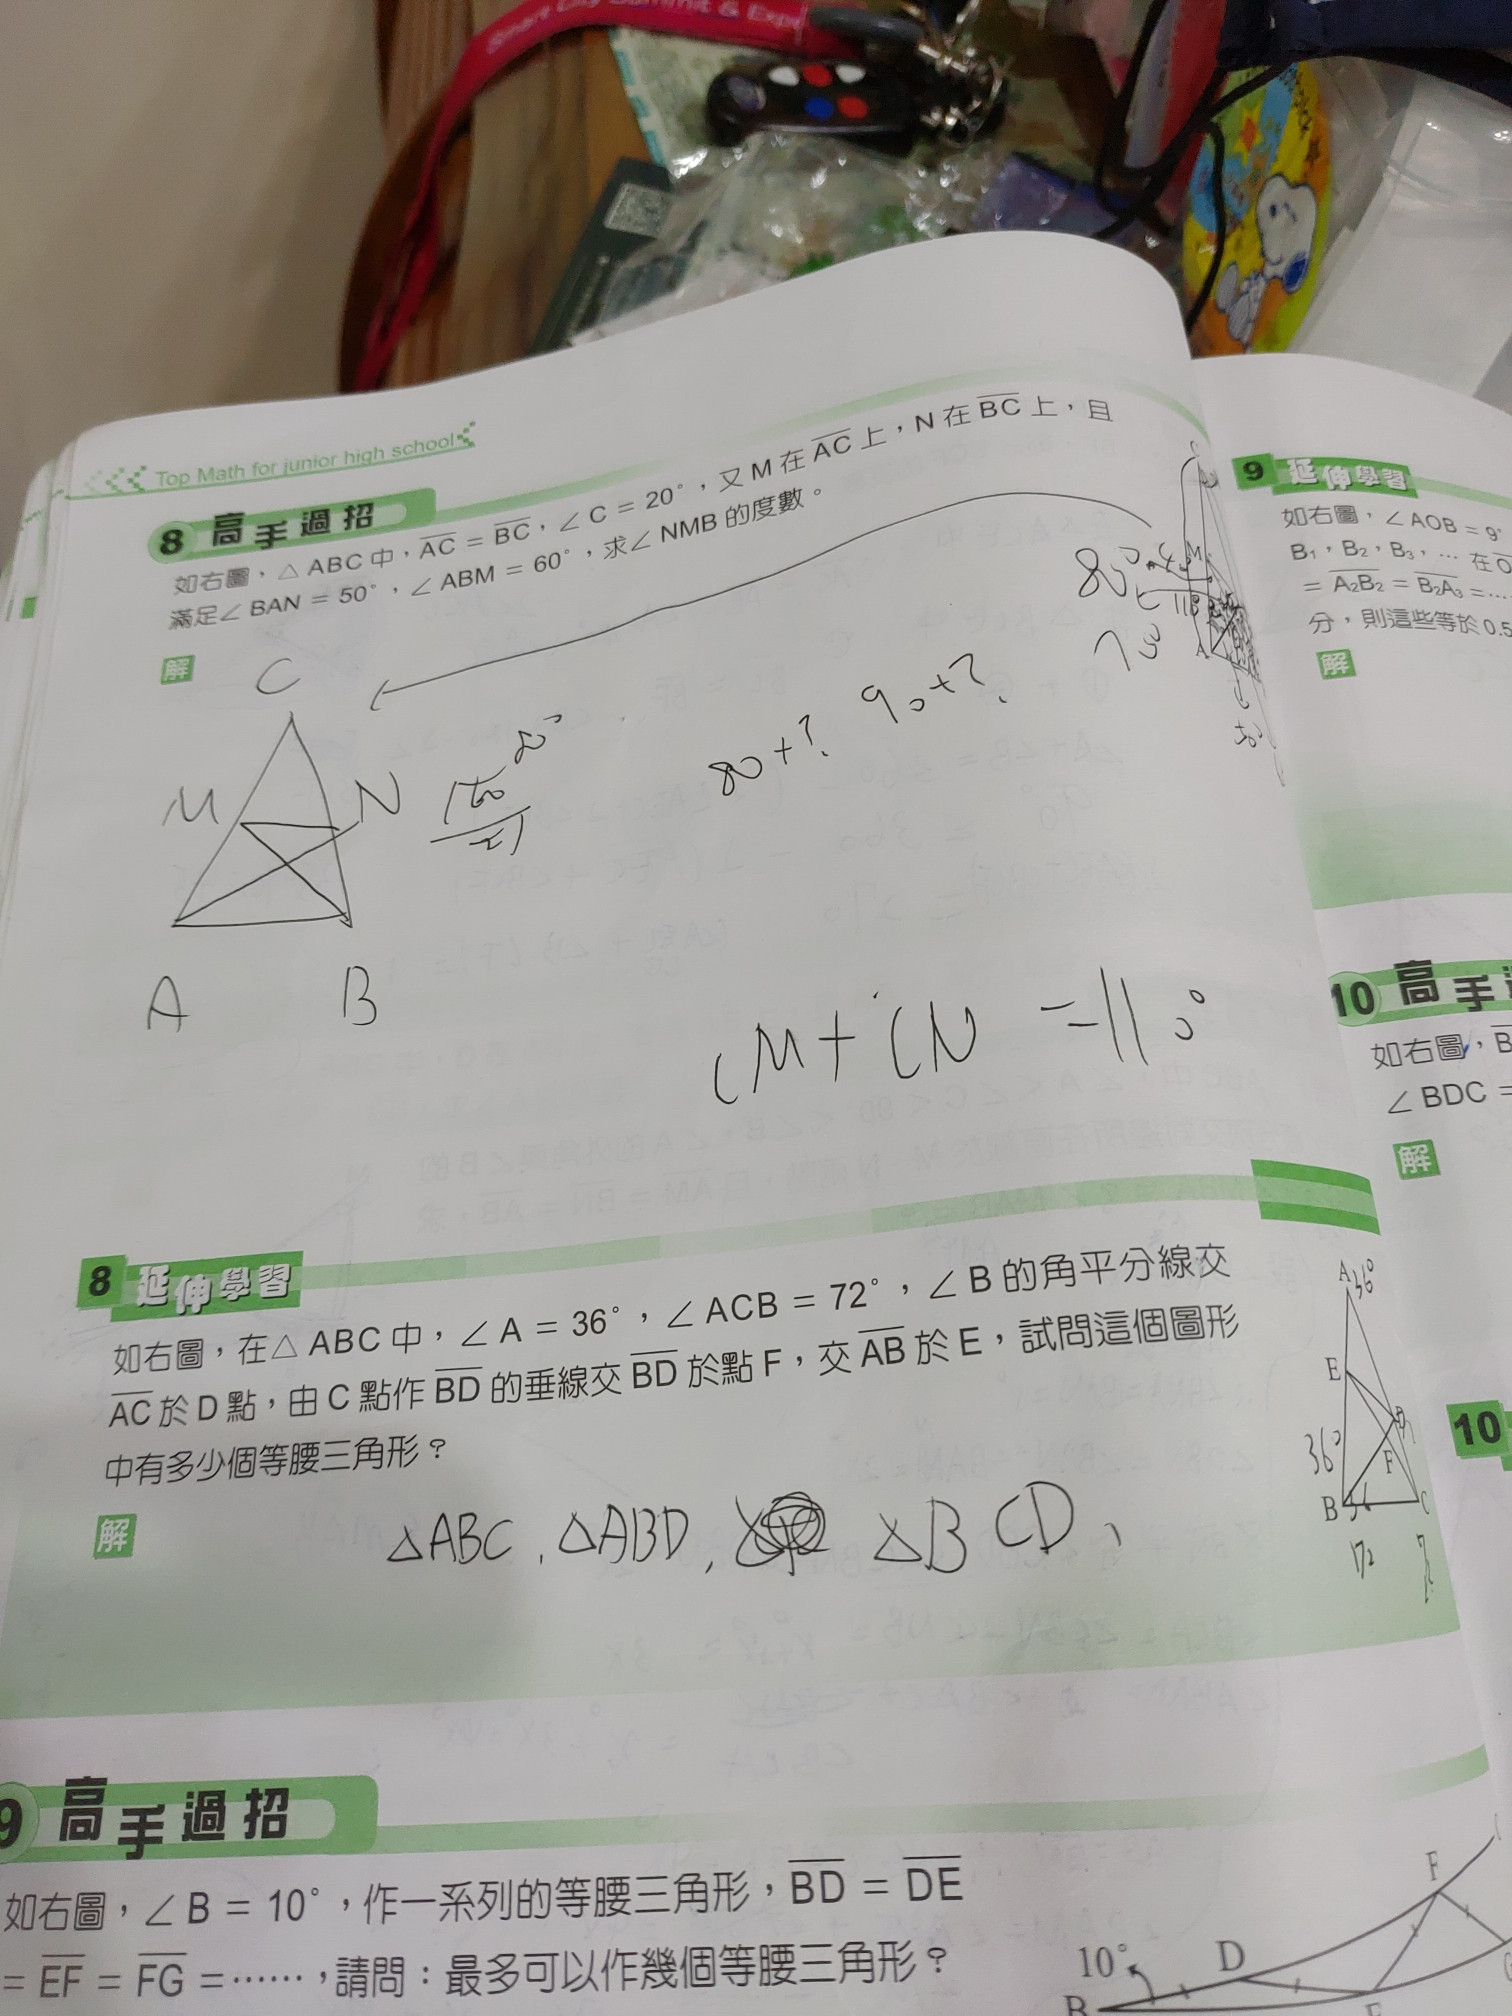 Smart City Summit & Expo
Top Math for junior high school
8 高手過招
如右圖，△ABC中，AC = BC，∠C = 20°，又M在AC上，N在BC上，且
滿足∠BAN = 50°，∠ABM = 60°，求∠NMB的度數。
解
C
M
N
A
B
80+?
90+?
M
A
=110°
8 延伸學習
如右圖，在△ABC中，∠A = 36°，∠ACB = 72°，∠B的角平分線交
AC於D點，由C點作BD的垂線交BD於點F，交AB於E，試問這個圖形
中有多少個等腰三角形？
解
△ABC、△ABD、
△BCD、
A
36°
E
D
36°
F
B
36
C
72
9 高手過招
如右圖，∠B = 10°，作一系列的等腰三角形，BD = DE
= EF = FG =……，請問：最多可以作幾個等腰三角形？
F
10°
D
B
E
9 延伸學習
如右圖，∠AOB = 9°
B₁，B₂，B₃，… 在
= A₂B₂ = B₂A₃ =…
分，則這些等於0.5
解
10 高手
如右圖，
∠BDC =
解
10